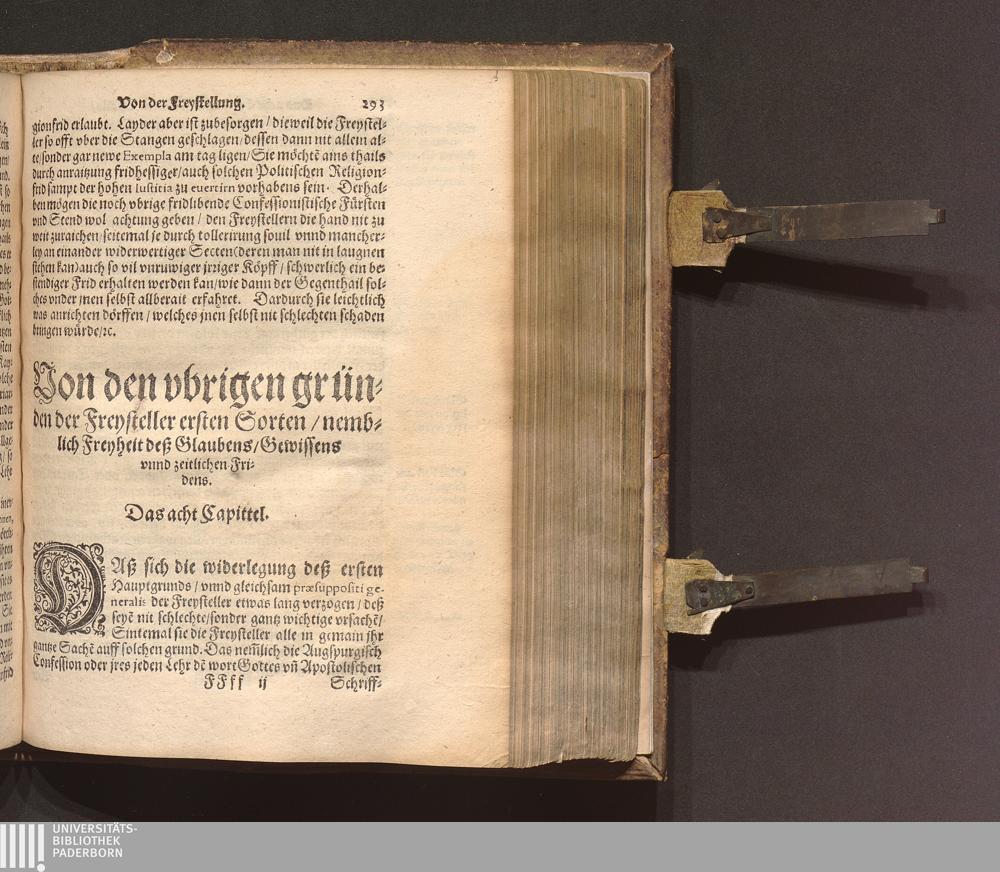 Von der Freystellung. 293
gionfrid erlaubt. Layder aber ist zubesorgen / dieweil die Freystel-
ler so offt vber die Stangen geschlagen / dessen dann nit allein al-
te / sonder gar newe Exempla am tag ligen / Sie möchtē ains thails
durch anraitzung fridhessiger / auch solchen Politischen Religion-
frid sampt der hohen Iustitia zu euertirn vorhabens sein. Derhal-
ben mögen die noch vbrige fridlibende Confessionistische Fürsten
vnd Stend wol achtung geben / den Freystellern die hand nit zu
weit zuraichen / seitemal je durch tollerirung souil vnnd mancher-
ley an einander widerwertiger Secten (deren man nit in laugnen
stehen kan) auch so vil vnruwiger jrriger Köpff / schwerlich ein be-
stendiger Frid erhalten werden kan / wie dann der Gegenthail sol-
ches vnder jnen selbst allberait erfahret. Dardurch sie leichtlich
was anrichten dörffen / welches jnen selbst nit schlechten schaden
bringen würde / ꝛc.
Von den vbrigen grün-
den der Freysteller ersten Sorten / nemb-
lich Freyheit deß Glaubens / Gewissens
vnnd zeitlichen Fri-
dens.
Das acht Capittel.
DAß sich die widerlegung deß ersten
Hauptgrunds / vnnd gleichsam præsuppositi ge-
neralis der Freysteller etwas lang verzogen / deß
seyē nit schlechte / sonder gantz wichtige vrsachē /
Sintemal sie die Freysteller alle in gemain jhr
gantze Sachē auff solchen grund. Das nem̄lich die Augspurgisch
Confession oder jres jeden Lehr dē wort Gottes vn̄ Apostolischen
FFff ij Schriff-
UNIVERSITÄTS-
BIBLIOTHEK
PADERBORN